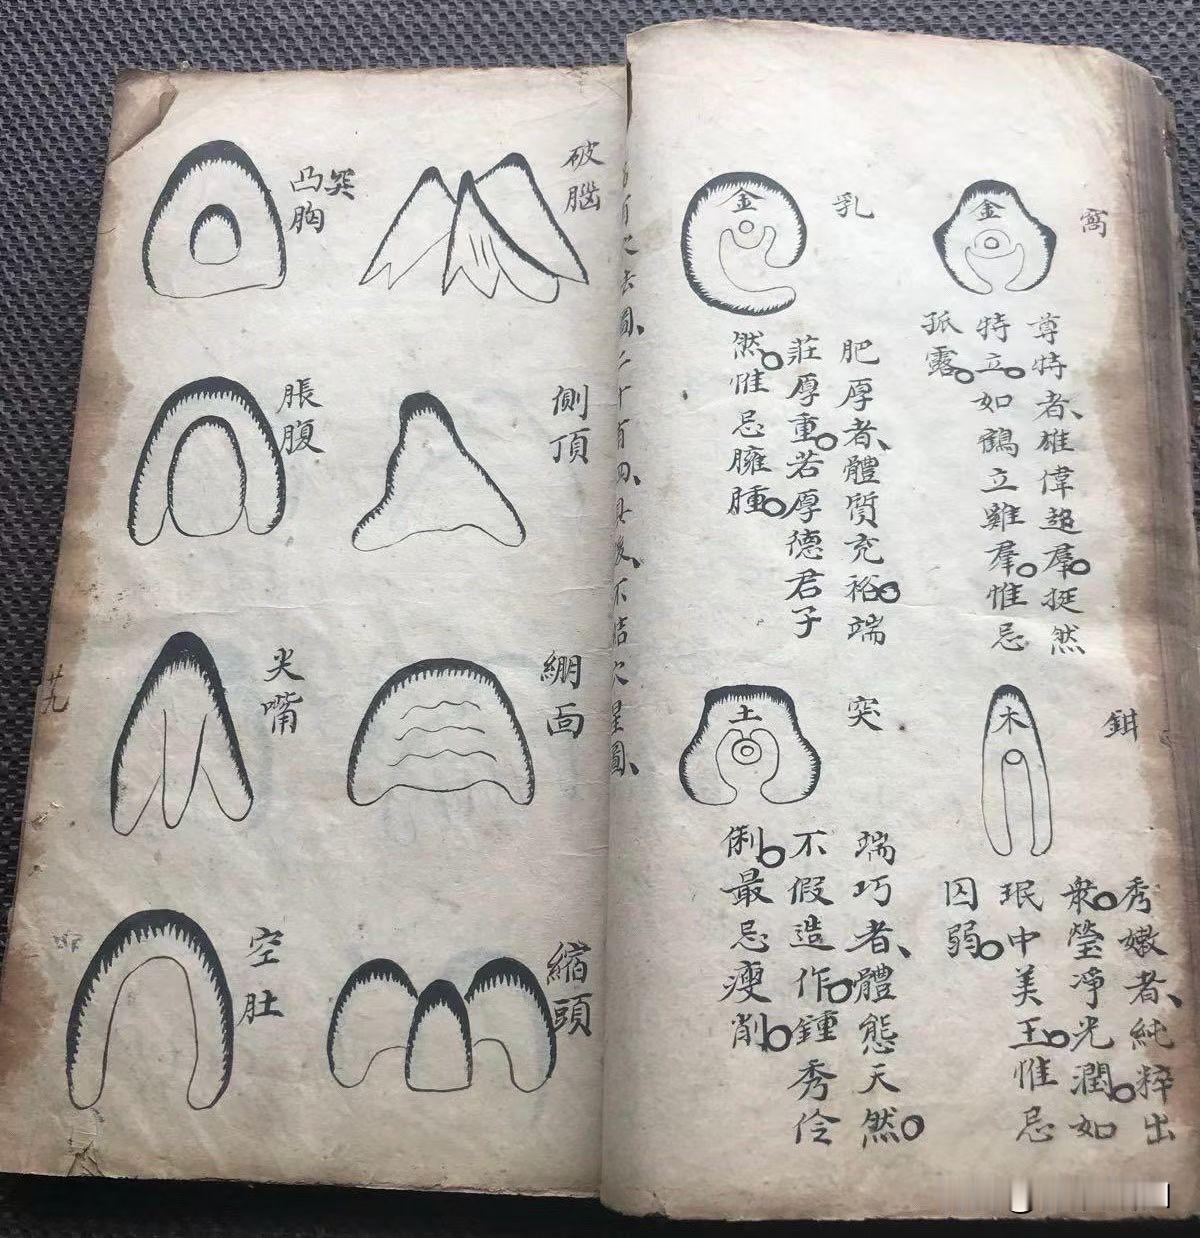 窩
金
尊特者、雄偉超羣。挺然
特立。如鶴立雞羣。惟忌
孤露。
乳
金
肥厚者、體質充裕。端
莊厚重。若厚德君子
然。惟忌臃腫。
鉗
木
秀嫩者、純粹出
衆。瑩凈光潤。如
珉中美王。惟忌
囚弱。
突
土
端巧者、體態天然。
不假造作。鍾秀伶
俐。最忌瘦削。
破腦
突
凸胸
側頂
脹腹
綳面
尖嘴
縮頭
空肚
廿九